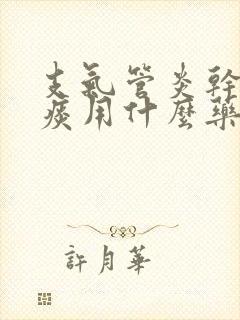 支氣管炎幹
痰用什麼藥
許月華